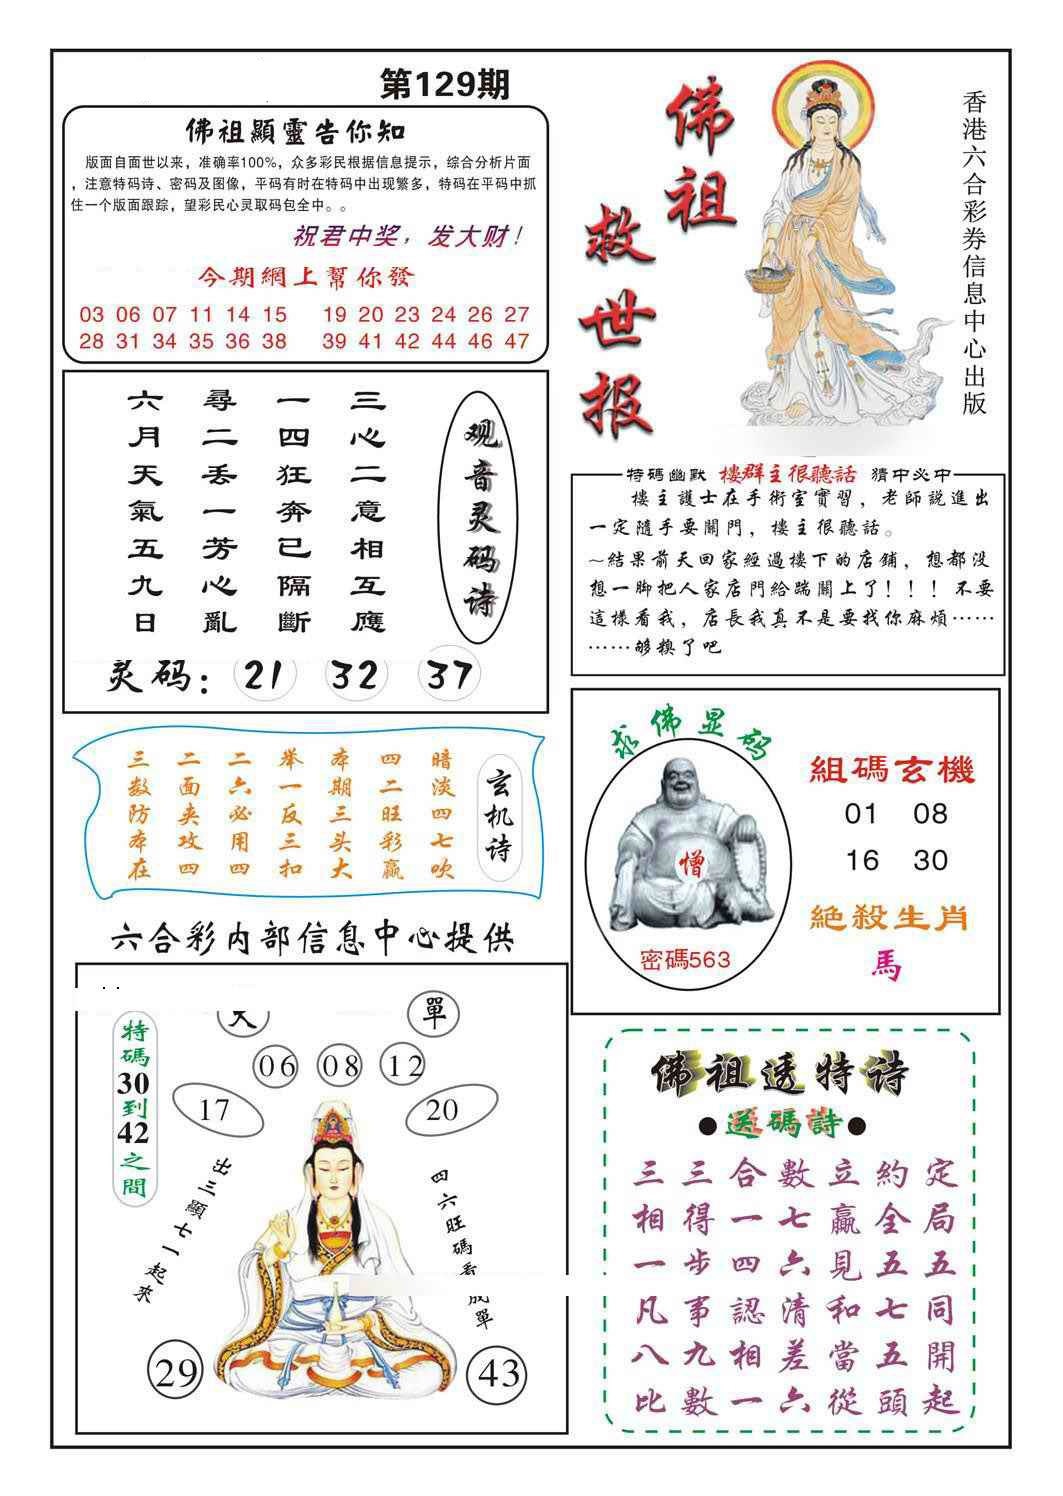 第129期
佛祖顯靈告你知
版面自面世以来，准确率100%，众多彩民根据信息提示，综合分析片面
，注意特码诗、密码及图像，平码有时在特码中出现繁多，特码在平码中抓
住一个版面跟踪，望彩民心灵取码包全中。。
祝君中奖，发大财！
今期網上幫你發
03 06 07 11 14 15 19 20 23 24 26 27
28 31 34 35 36 38 39 41 42 44 46 47
佛祖
救世报
香港六合彩券信息中心出版
观音灵码诗
三心二意相互應
一四狂奔已隔斷
尋二丢一芳心亂
六月天氣五九日
灵码：21 32 37
特碼幽默 樓群主很聽話 猜中必中
樓主護士在手術室實習，老師説進出
一定隨手要關門，樓主很聽話。
～结果前天回家經過樓下的店鋪，想都没
想一脚把人家店門給踹關上了！！！不要
這樣看我，店長我真不是要找你麻煩……
……够糗了吧
玄机诗
暗淡四七吹
四二旺彩赢
本期三头大
举一反三扣
二六必用四
二面夹攻四
三数防本在
求佛显码
僧
密碼563
組碼玄機
01 08
16 30
絕殺生肖
馬
六合彩内部信息中心提供
單
06 08 12
17 20
特碼30到42之間
出三顯七一起來
四六旺碼看成單
29 43
佛祖透特诗
●送碼詩●
三三合數立約定
相得一七贏全局
一步四六見五五
凡事認清和七同
八九相差當五開
比數一六從頭起